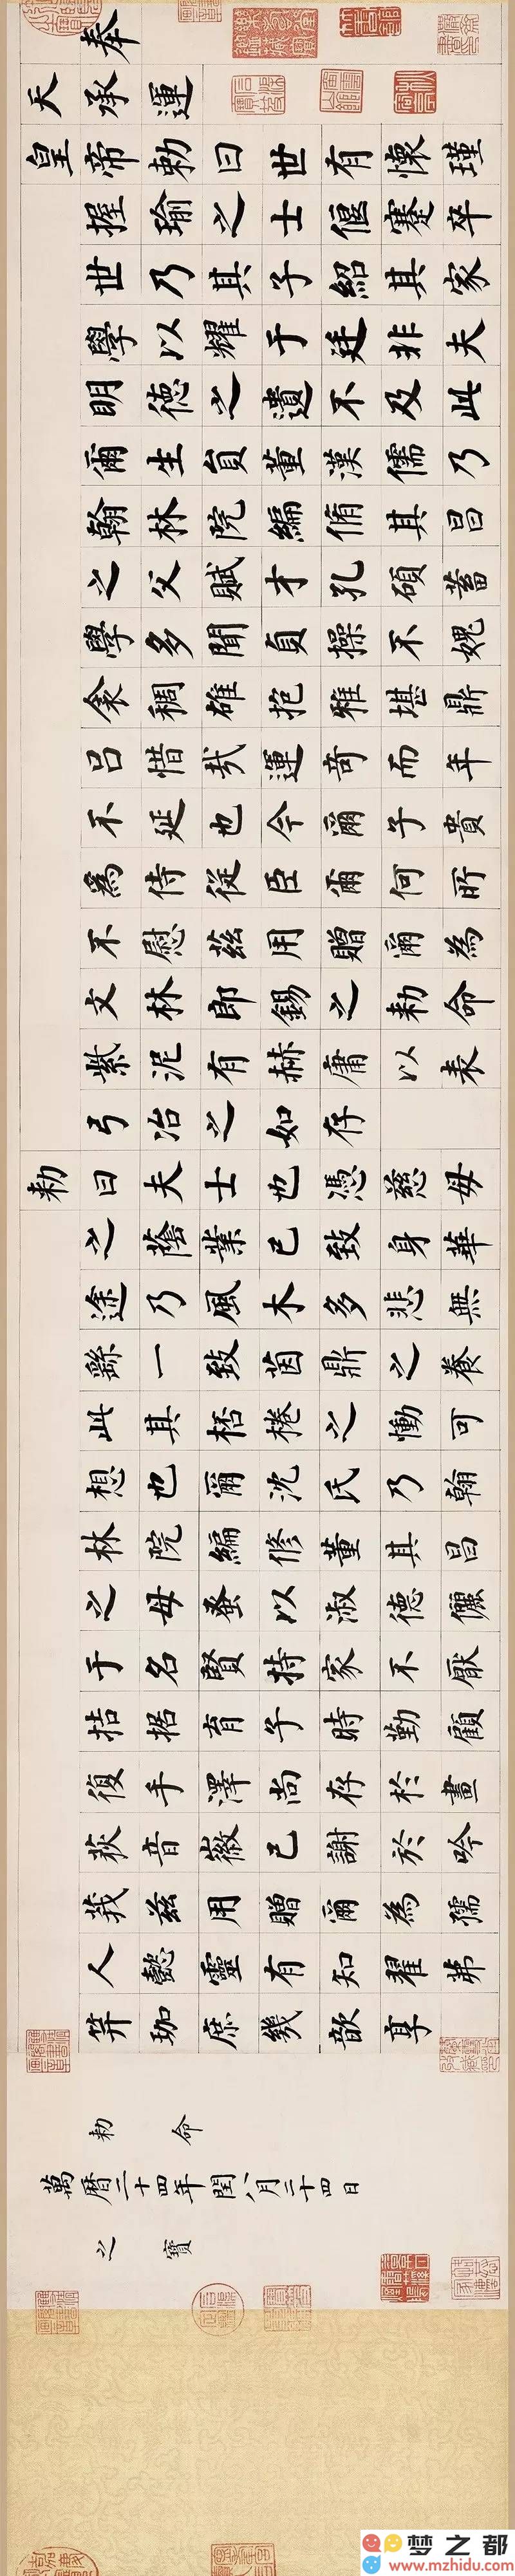 奉
天承運
皇帝勅曰世有懷瑾
握瑜之士偃蹇卒
世乃其子紹其家
學以耀于廷非夫
明德之遺不及此
爾生員董漢儒乃
翰林院編脩其昌
之父賦才孔碩蓄
學多聞貞操不媿
衾稠雄抱雅堪鼎
呂惜哉運奇而年
不延也今爾子貴
為侍從臣爾何所
不慰茲用贈爾為
文林郎錫之勅命
紫泥有赫庸以表
弓冶之如存
勅曰夫士也憑慈母
之蔭業已致身華
途乃風木多悲無
繇一致茵鼎之養
此其桮棬之慟可
想也爾沈氏乃翰
林院編修董其昌
之母蚤以淑德儷
于名賢持家不厭
拮据育子時勤顧
復手澤尚存於畫
荻音徽已謝於吟
莪茲用贈爾為孺
人懿靈有知翟茀
笄珈庶幾歆享
勅命
萬曆二十四年閏八月二十四日
之寶
梦之都
www.mzhidu.com